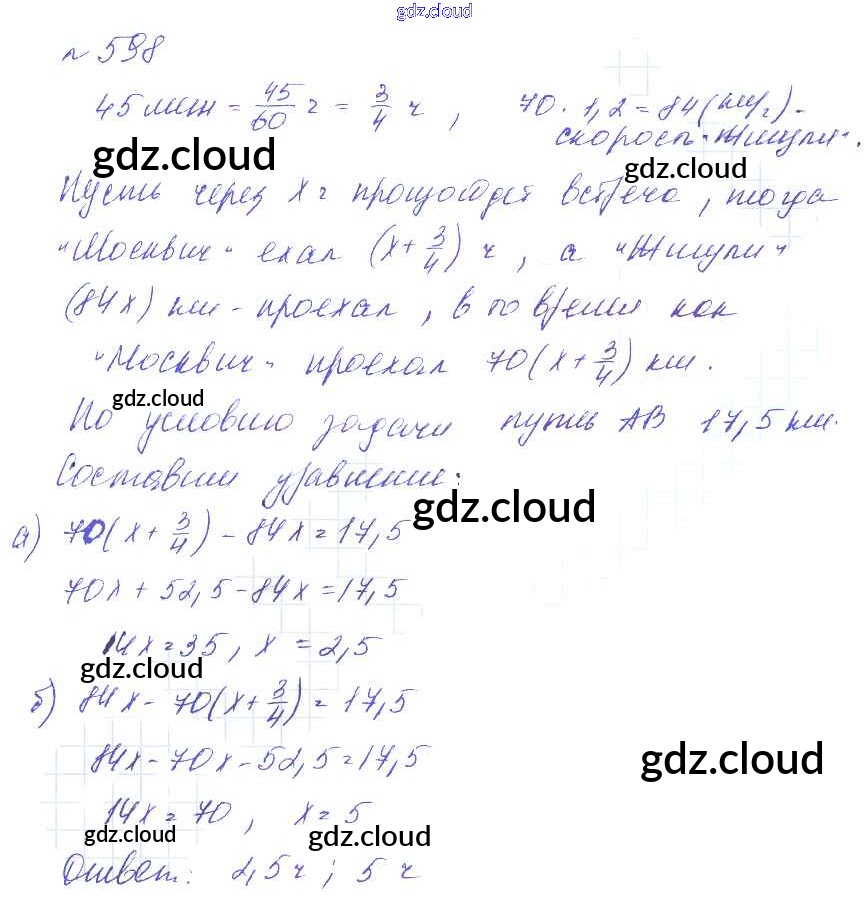 gdz.cloud
№ 598
45 мин = 45/60 ч = 3/4 ч , 70 · 1,2 = 84 (км/ч) -
gdz.cloud скорость "Жигули".
gdz.cloud
Пусть через x ч произойдет встреча, тогда
"Москвич" ехал (x + 3/4) ч, а "Жигули"
(84x) км - проехал, в то время как
"Москвич" проехал 70(x + 3/4) км.
gdz.cloud
По условию задачи путь АВ 17,5 км.
Составим уравнение:
gdz.cloud
а) 70(x + 3/4) - 84x = 17,5
70x + 52,5 - 84x = 17,5
14x = 35, x = 2,5
gdz.cloud
б) 84x - 70(x + 3/4) = 17,5
84x - 70x - 52,5 = 17,5
gdz.cloud
14x = 70, x = 5
gdz.cloud gdz.cloud
Ответ: 2,5 ч ; 5 ч